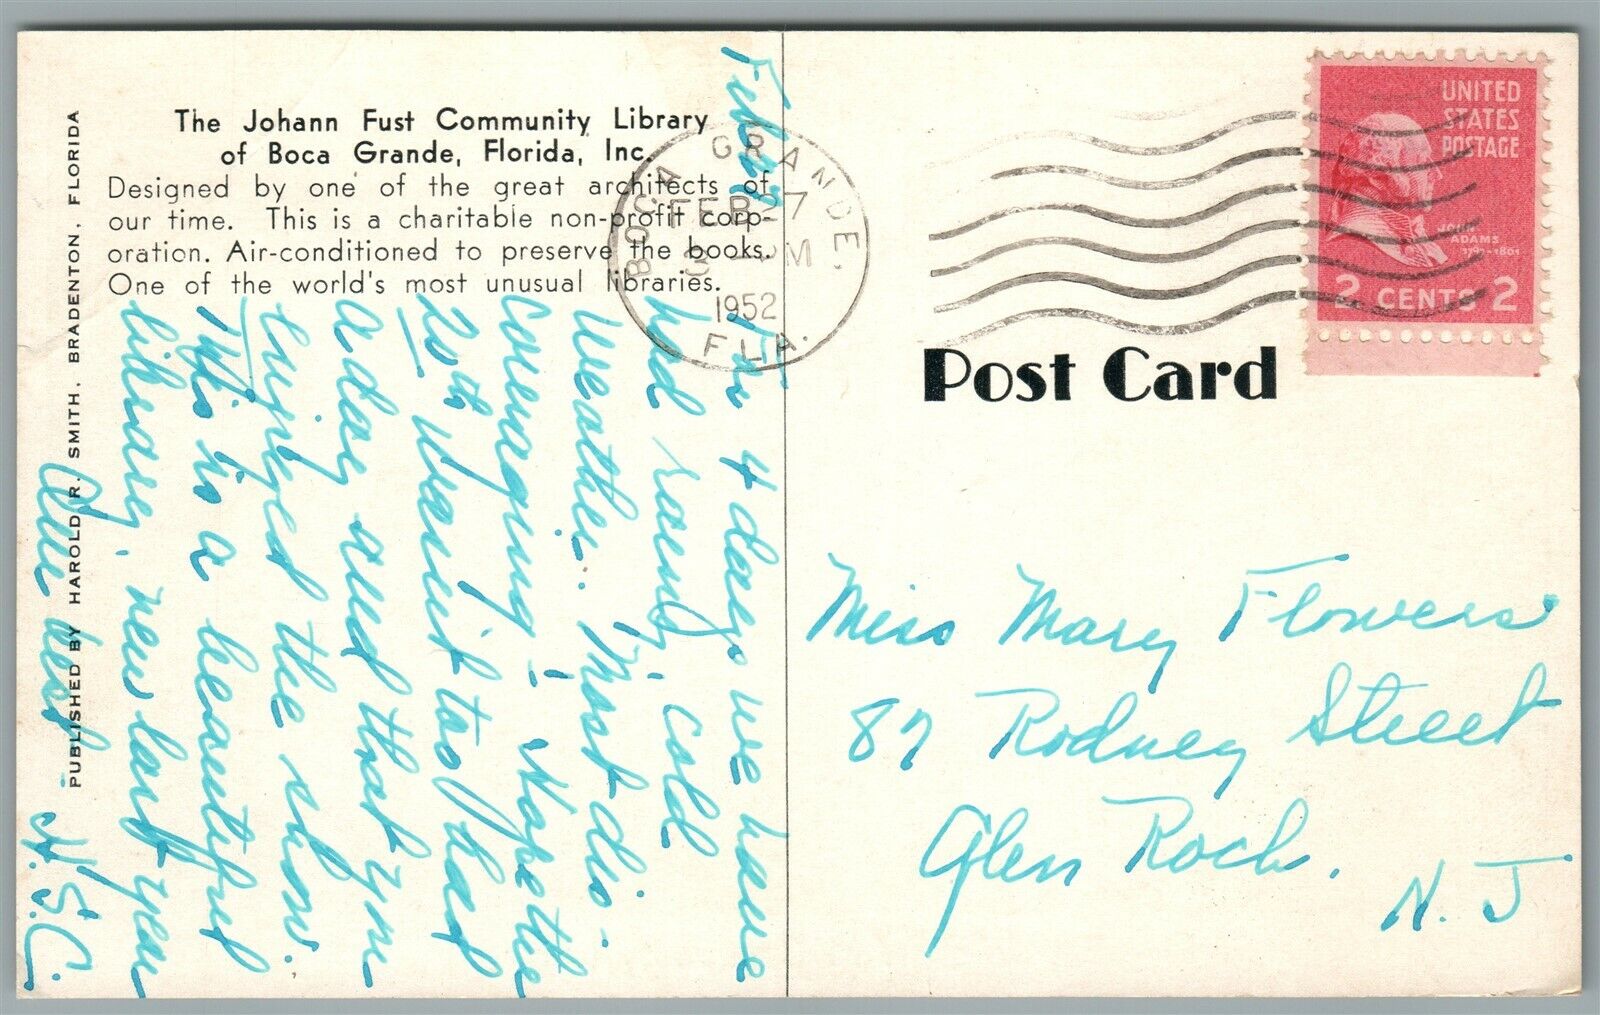 The Johann Fust Community Library
of Boca Grande, Florida, Inc.
Designed by one of the great architects of
our time. This is a charitable non-profit corp-
oration. Air-conditioned to preserve the books.
One of the world's most unusual libraries.
PUBLISHED BY HAROLD R. SMITH, BRADENTON, FLORIDA
Feb.
For 4 days we have
had rainy, cold
weather. Most dis-
couraging - Hope the
20th wasn't too bad
a day and that you
enjoyed the show.
This is a beautiful
library, new last year
All best
H.S.C.
BOCA GRANDE,
FEB 7
PM
1952
FLA.
UNITED
STATES
POSTAGE
JOHN
ADAMS
1797-1801
2 CENTS 2
Post Card
Miss Mary Flowers
87 Rodney Street
Glen Rock,
N. J